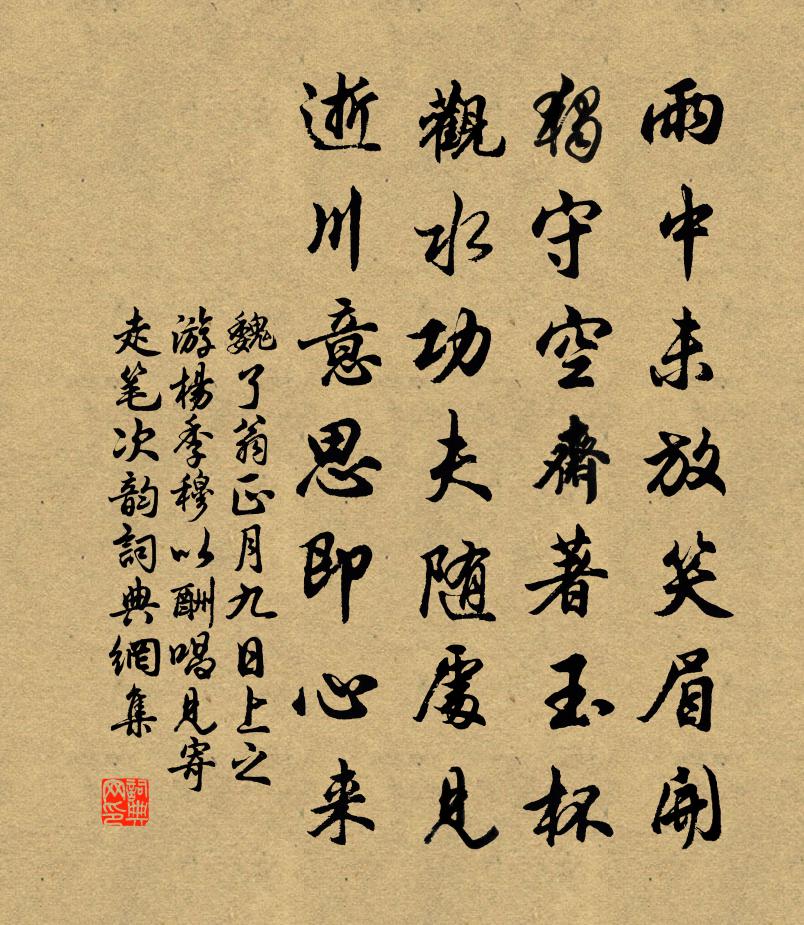 雨中未放笑眉開
獨守空齋著玉杯
觀水功夫随處見
逝川意思即心来
魏了翁正月九日上之
游楊季穆以酬唱見寄
走笔次韵詞典網集
詞典网印